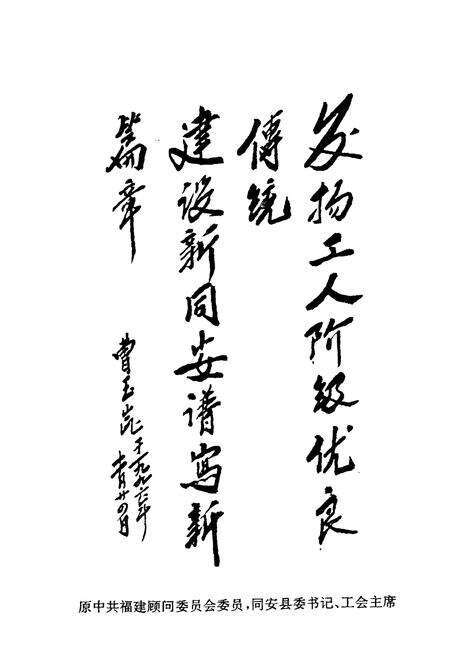 发扬工人阶级优良
傳统
建设新同安谱写新
篇章
曹玉崑于一九九六年
十一月廿四日
原中共福建顾问委员会委员,同安县委书记、工会主席